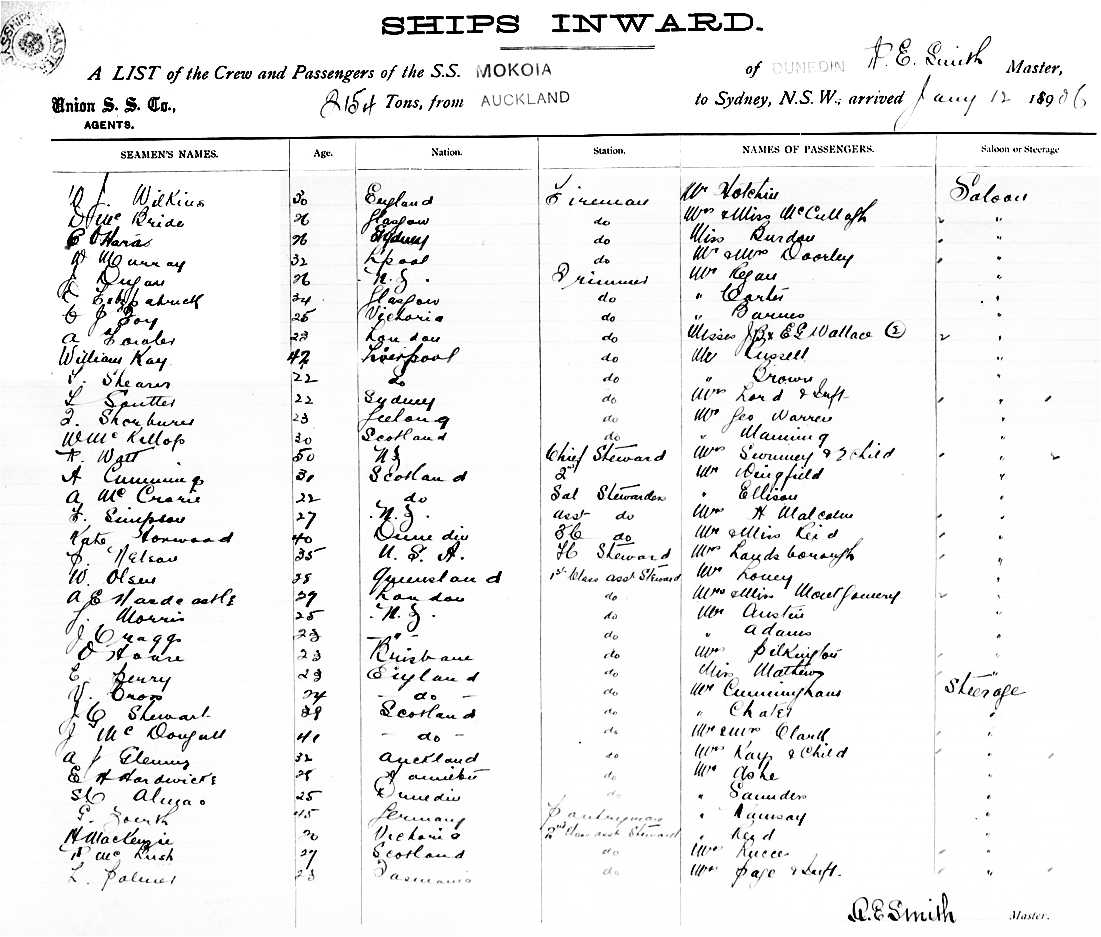 SHIPS INWARD.
A LIST of the Crew and Passengers of the S.S. MOKOIA of DUNEDIN A. E. Smith Master,
Union S. S. Co., 2154 Tons, from AUCKLAND to Sydney, N.S.W., arrived Jany 12 1906
AGENTS.
SEAMEN'S NAMES. Age. Nation. Station. NAMES OF PASSENGERS. Saloon or Steerage
J. Wilkins 30 England Fireman Mr Hotchin Saloon "
D McBride 26 Glasgow do Mrs & Miss McCullagh "
E O'Hara 26 Sydney do Miss Burdon "
Murray 32 L'pool do Mr & Mrs Doorley "
J Dugan 26 N.Z. Trimmer Mr Regan "
Fitzpatrick 34 Glasgow do " Carter "
J Foy 25 Victoria do " Barnes "
A Fowler 23 London do Misses J B & E G Wallace (2) 2 "
William Kay 42 Liverpool do Mr Russell "
Shearer 22 do do " Brown "
L Soutter 22 Sydney do Mrs Lord & Inft "
Shorbures 23 Geelong do Mr Geo Warren "
W McKellop 30 Scotland do " Manning "
Watt 50 NZ Chief Steward Mrs Swinney & 2 Child "
A Cumming 30 Scotland 2nd Mr Wingfield "
A McCrorie 22 do Sal Stewardess " Ellison "
F. Simpson 27 N.Z. asst do Mrs H Malcolm "
Kate Horwood 40 Dunedin do Mr & Miss Reid "
J. Nelson 35 U.S.A. Steward Mrs Landsborough "
W. Olsen 28 Queensland 1st Class asst Steward Mr Loney "
A E Hardcastle 29 London do Mrs & Miss Montgomery "
J. Morris 25 N.Z. do Mr Austin "
J Craggs 23 " do " Adams "
O Hoare 23 Brisbane do Mrs Pilkington "
E Henry 23 England do Miss Mathews "
V. Cross 24 do do Mr Cunningham Steerage
J G Stewart 28 Scotland do " Chater "
J McDougall 41 do do Mr & Mrs Clark "
A J Glenny 32 Auckland do Mrs Kay & Child "
E H Hardwicke 28 Hamilton do Mr Ashe "
25 Dunedin do " Saunders "
G. Germany Pantryman " Ramsay "
H MacKenzie 20 Victoria 2nd Class asst Steward " Reid "
27 Scotland do "
L. Palmer 23 Tasmania do Mrs Page & Inft. "
A. E Smith Master.